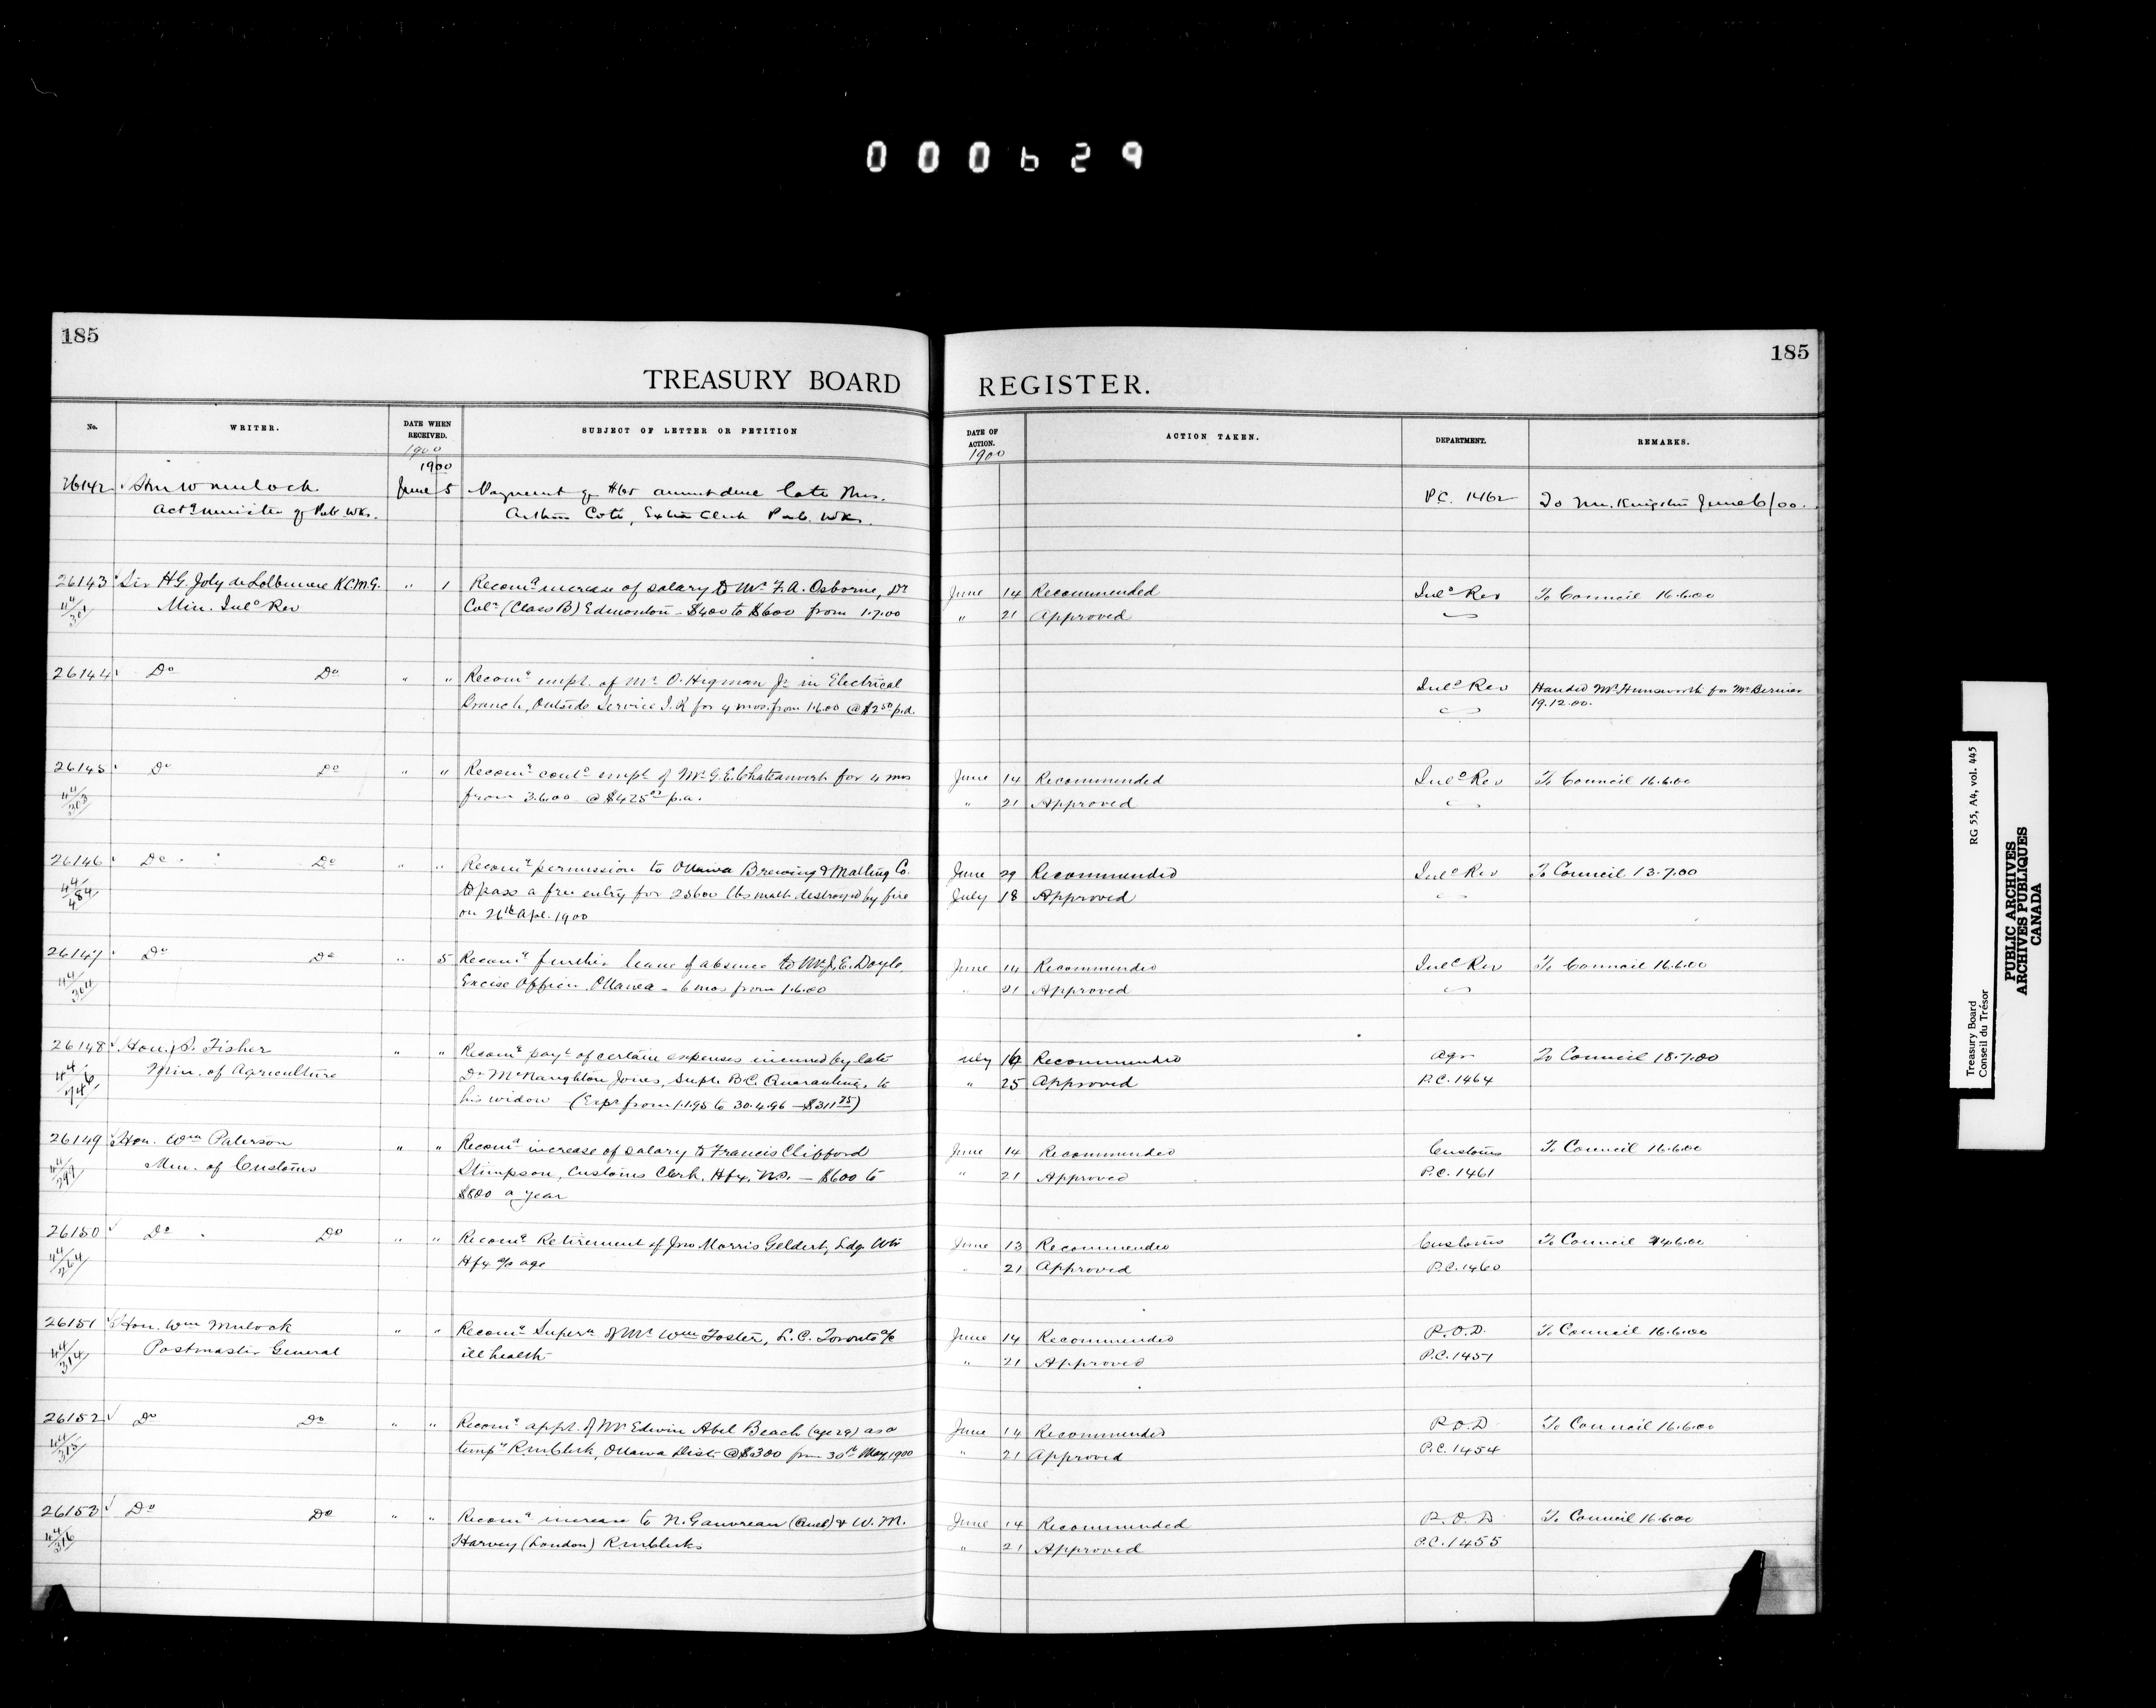 000629
185
185
TREASURY BOARD REGISTER.
No. WRITER. DATE WHEN RECEIVED. SUBJECT OF LETTER OR PETITION DATE OF ACTION. ACTION TAKEN. DEPARTMENT. REMARKS.
1900 1900
1900
26142 Hon W Mulock June 5 Payment of amount due late Mrs. P.C. 1462 To Mr. June 6/00.
Actg Minister of Pub Wks. Arthur Coté, Extra Clerk Pub. Wks.
26143 Sir H.G. Joly de Lotbiniere K.C.M.G. " 1 Recomg increase of salary to Mr F.A. Osborne, Dy June 14 Recommended Inld Rev To Council 16.6.00
44/301 Min. Inld Rev Colr (Class B) Edmonton - $400 to $600 from 1.7.00 " 21 Approved
26144 Do Do " " Recomg empt. of Mr O. Higman Jr in Electrical Inld Rev Handed Mr Hunsworth for Mr Bernier
Branch, Outside Service I.R for 4 mos. from 1.6.00 @ $2.50 p.d. 19.12.00.
26145 Do Do " " Recomg contd empt of Mr G.E. Chateauvert for 4 mos June 14 Recommended Inld Rev To Council 16.6.00
44/303 from 3.6.00 @ $425.00 p.a. " 21 Approved
26146 Do Do " " Recomg permission to Ottawa Brewing & Malting Co. June 29 Recommended Inld Rev To Council 13.7.00
44/484 to pass a free entry for 25600 lbs malt destroyed by fire July 18 Approved
on 26th Apl. 1900
26147 Do Do " 5 Recomg further leave of absence to Mr J.E. Doyle, June 14 Recommended Inld Rev To Council 16.6.00
44/304 Excise Officer Ottawa - 6 mos from 1.6.00 " 21 Approved
26148 Hon. S. Fisher " " Recomg payt of certain expenses incurred by late July Recommended Agr To Council 18.7.00
Min. of Agriculture Dr McNaughton Jones, Supt. B.C. Quarantine, to " 25 Approved P.C. 1464
his widow (Expr from 1.1.95 to 30.4.96 - $311.75)
26149 Hon. Wm Paterson " " Recomg increase of salary to Francis Clifford June 14 Recommended Customs To Council 16.6.00
44/297 Min. of Customs Stimpson, Customs Clerk, Hfx, N.S. - $600 to " 21 Approved P.C. 1461
$800 a year
26150 Do Do " " Recomg Retirement of Jno Morris Geldert, Ldg. Wtr June 13 Recommended Customs To Council 14.6.00
44/264 Hfx a/c age " 21 Approved P.C. 1460
26151 Hon. Wm Mulock " " Recomg Supern of Mr Wm Foster, L.C. Toronto a/c June 14 Recommended P.O.D. To Council 16.6.00
44/314 Postmaster General ill health " 21 Approved P.C. 1451
26152 Do Do " " Recomg appt. of Mr Edwin Abel Beach (age 29) as a June 14 Recommended P.O.D To Council 16.6.00
44/315 tempy R.M. Clerk, Ottawa Dist. @ $300 from 30th May, 1900 " 21 Approved P.C. 1454
26153 Do Do " " Recomg increase to N. Gauvreau (Queb) & W.M. June 14 Recommended P.O.D To Council 16.6.00
44/316 Harvey (London) R.M. Clerks " 21 Approved P.C. 1455
Treasury Board RG 55, A4, vol. 445
Conseil du Trésor
PUBLIC ARCHIVES
ARCHIVES PUBLIQUES
CANADA